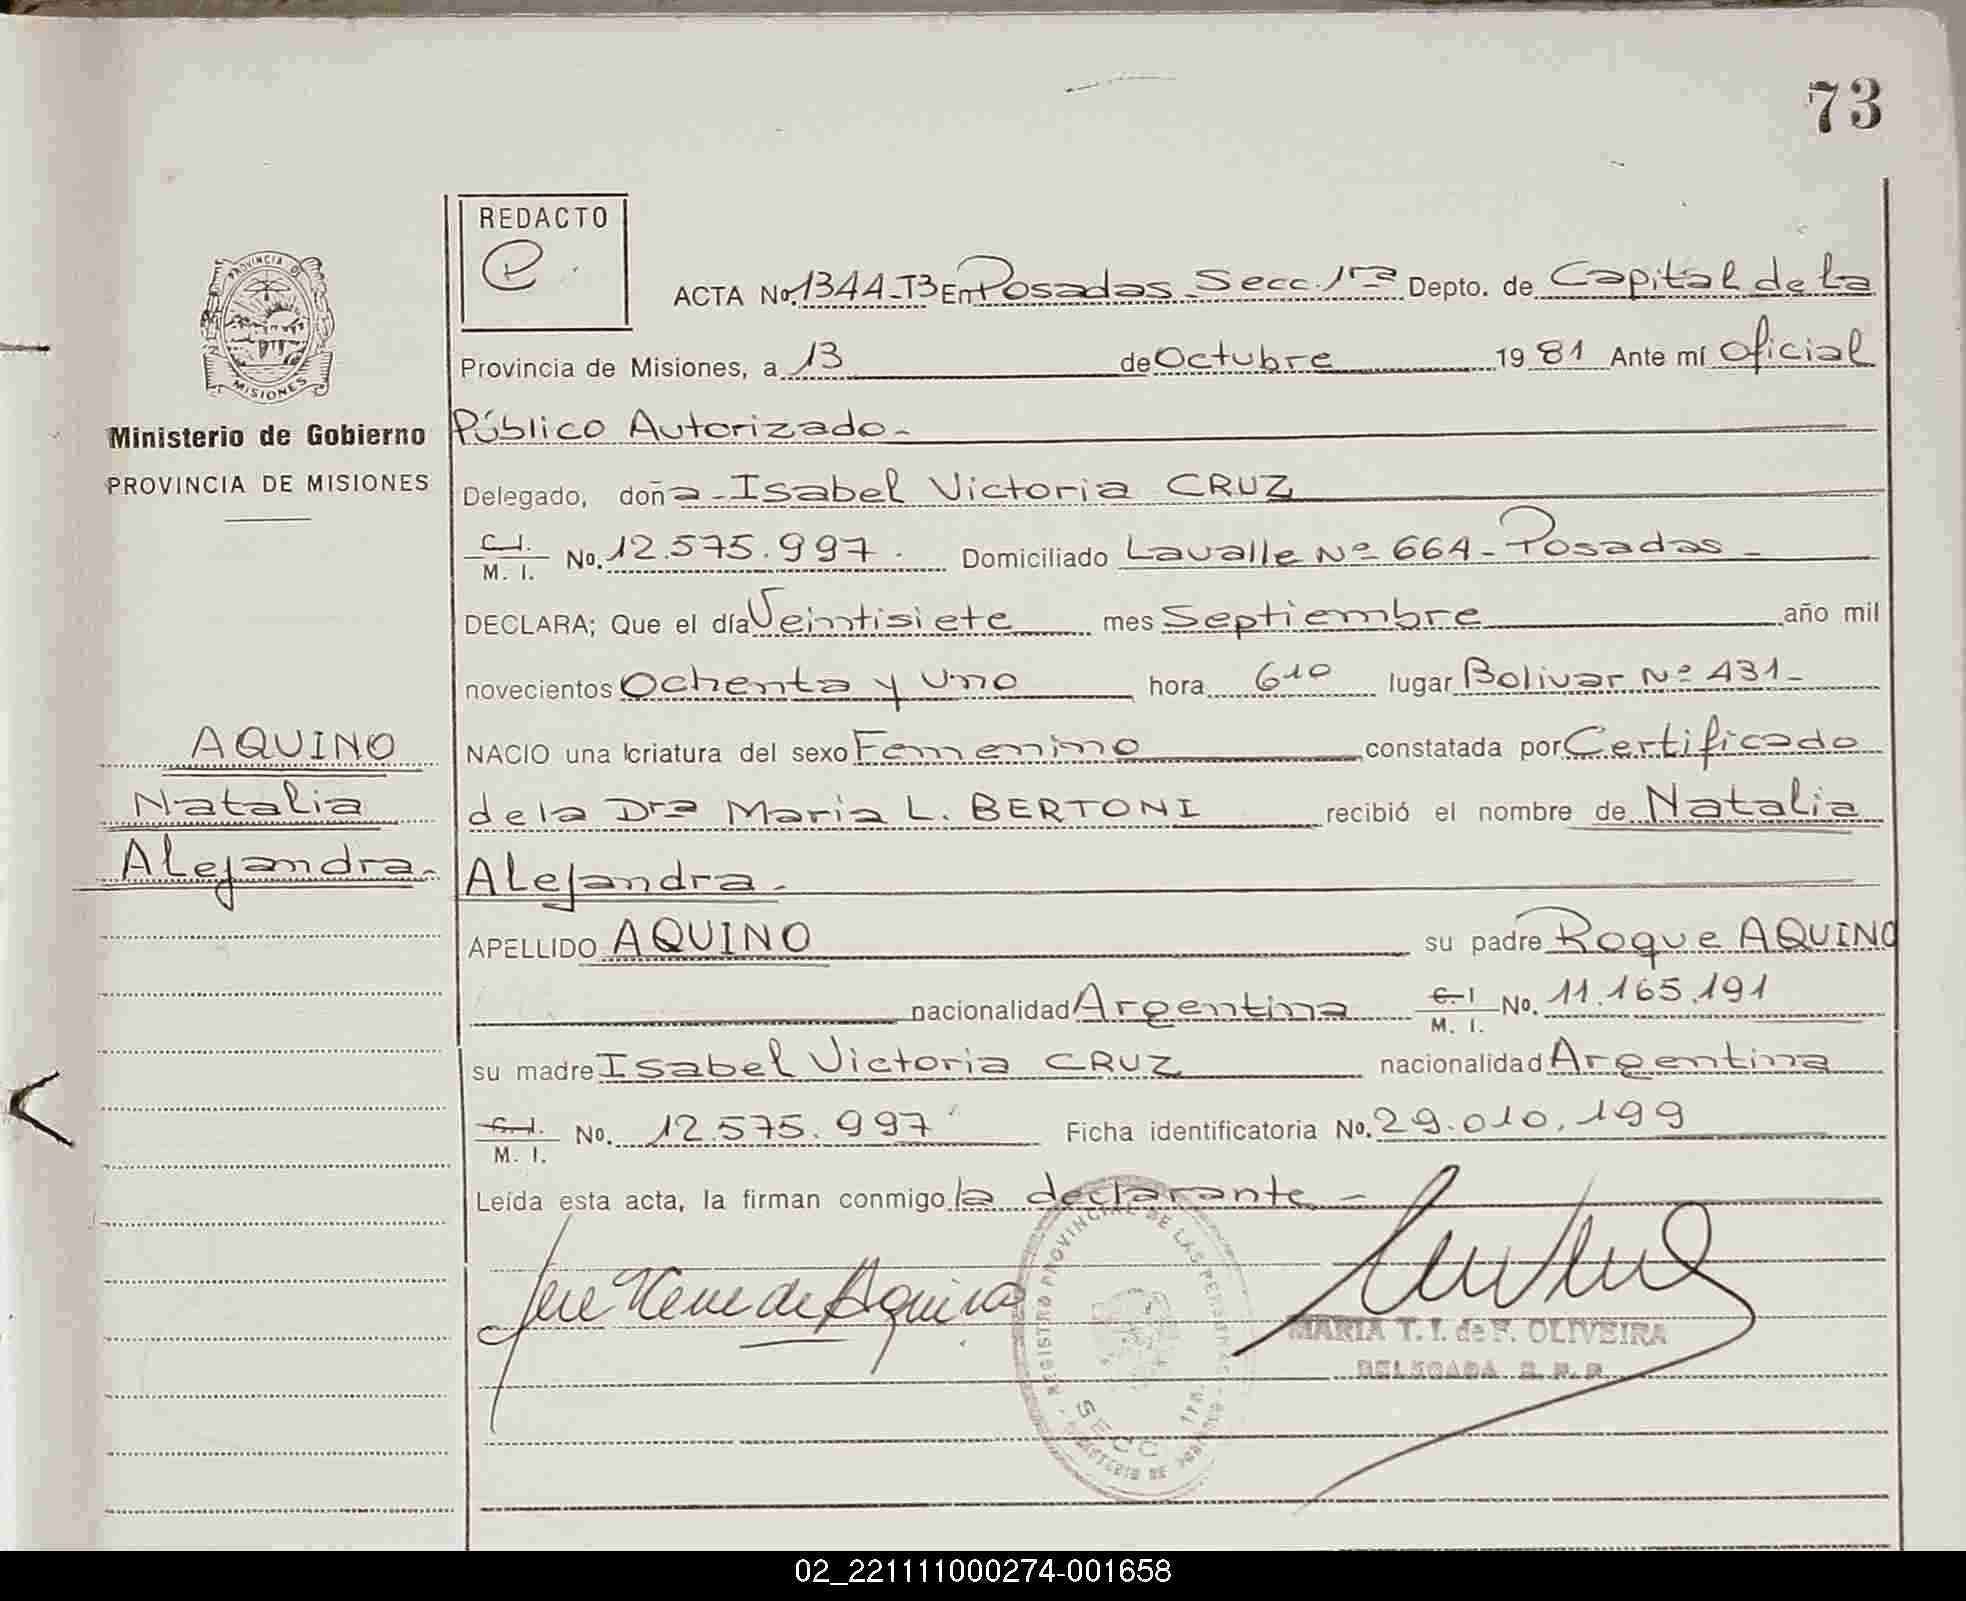 73
REDACTO
PROVINCIA DE
MISIONES
ACTA No. 1344-T3 En Posadas Secc. 1ra Depto. de Capital de la
Provincia de Misiones, a 13 de Octubre 1981 Ante mí Oficial
Ministerio de Gobierno
Público Autorizado-
PROVINCIA DE MISIONES
Delegado, doña-Isabel Victoria CRUZ
C.I. M. I. No. 12.575.997. Domiciliado Lavalle Nº 664-Posadas-
DECLARA; Que el día Veintisiete mes Septiembre año mil
novecientos Ochenta y Uno hora 610 lugar Bolivar Nº 431-
AQUINO
NACIO una criatura del sexo Femenino constatada por Certificado
Natalia
de la Dra Maria L. BERTONI recibió el nombre de Natalia
Alejandra-
Alejandra-
APELLIDO AQUINO su padre Roque AQUINO
nacionalidad Argentina C.I M. I. No. 11.165.191
su madre Isabel Victoria CRUZ nacionalidad Argentina
C.I. M. I. No. 12.575.997 Ficha identificatoria No. 29.010.199
Leída esta acta, la firman conmigo la declarante-
de Aquino
REGISTRO PROVINCIAL DE LAS PERSONAS
SECC 1ra.
MARIA T. I. de F. OLIVEIRA
DELEGADA
02_221111000274-001658